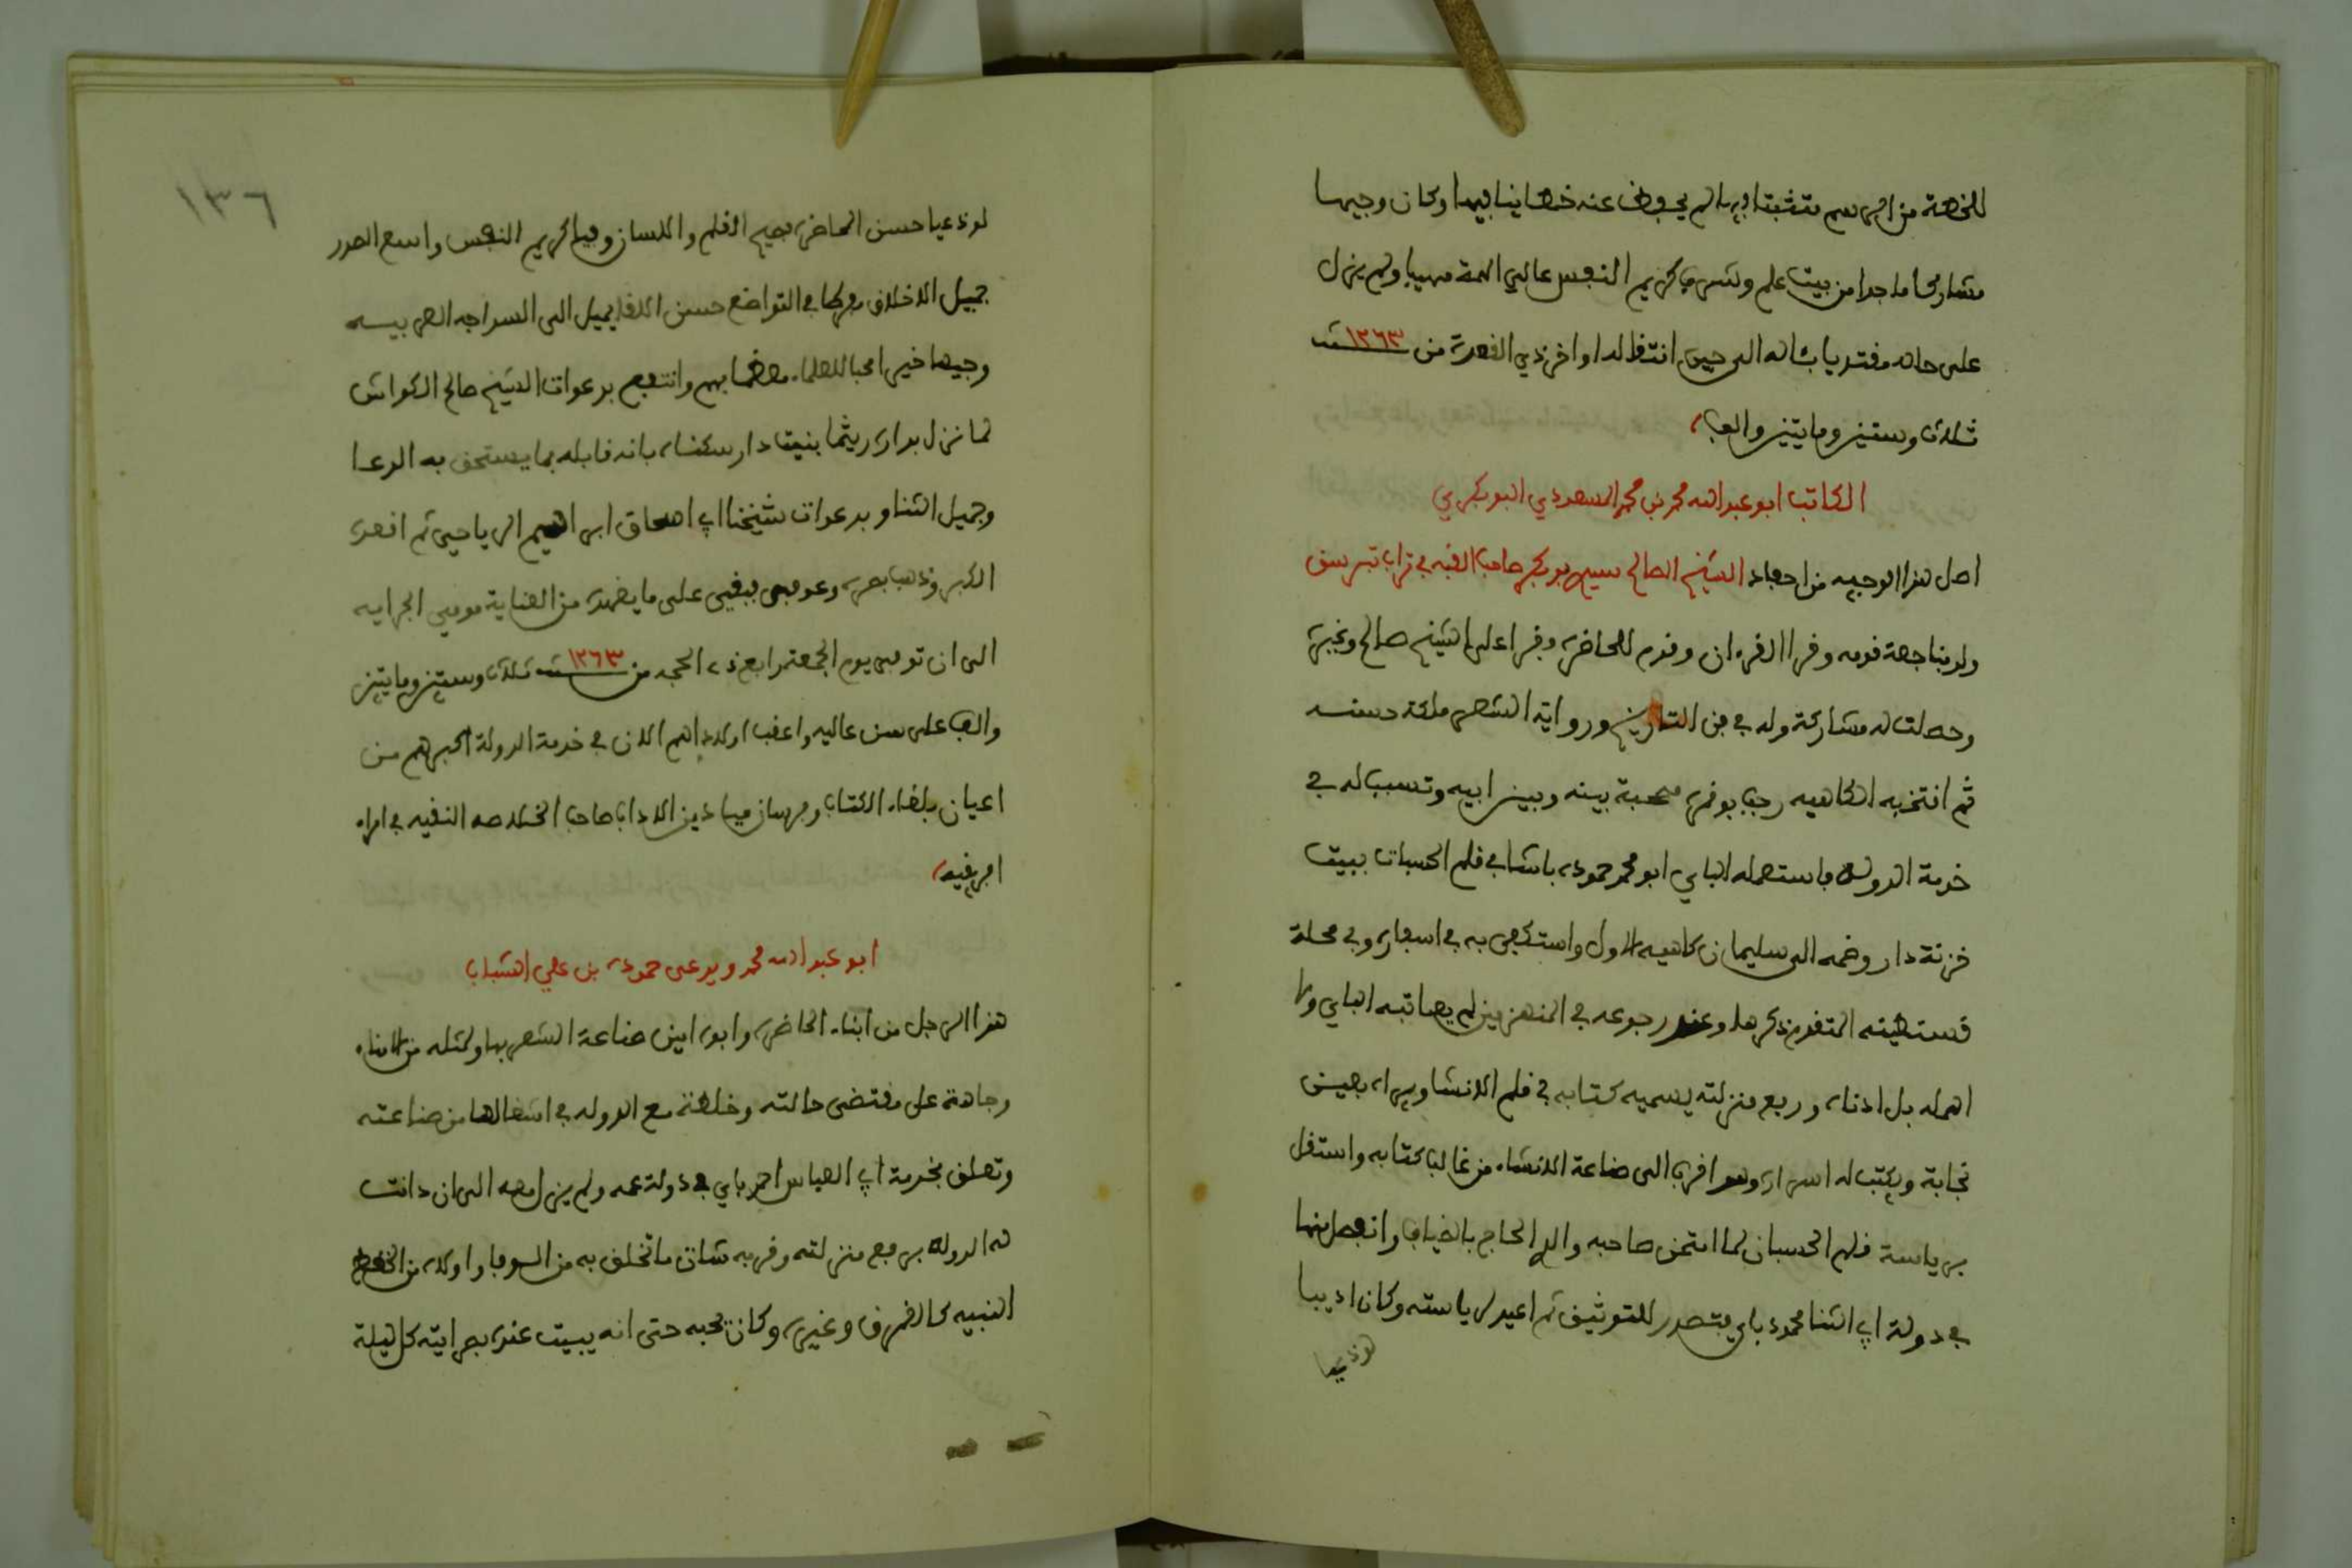 للخصة من الرسم متثبتا فيه لم يحفظ عنه خطا ينافيها وكان وجيها
مشاركا ماجدا من بيت علم وشرف كريم النفس عالي الهمة مهيبا ولم يزل
على حاله مقتديا بئاله الى حين انتقاله اواخر ذي القعدة من ١٢٦٣ سنة
ثلاث وستين ومايتين والف
الكاتب ابو عبد الله محمد بن محمد المسعودي البوبكري
اصل هذا الوجيه من احفاد الشيخ الصالح سيدي بوبكر صاحب القبة في تراب تبرسق
ولد بناجعة قومه وقرا القرءان وقدم للحاضرة وقرا على الشيخ صالح وغيره
وحصلت له مشاركة وله في فن التاريخ ورواية الشعر ملكة حسنه
ثم انتخبه الكاهيه رجب بونمرة لصحبة بينه وبين ابيه وتسبب له في
خدمة الدولة فاستعمله الباي ابو محمد حمودة باشا في قلم الحسبات ببيت
خزنة دار وضمه الى سليمان كاهيه الاول واستكفى به في اسفاره وفي محلة
قسنطينه المتقدم ذكرها وعند رجوعه في المنهزمين لم يعاتبه الباي ولا
اهمله بل ادناه ورفع منزلته يسميه كتابه في قلم الانشا ويراه بعين
نجابة ويكتب له اسراره وهو اقرب الى صناعة الانشاء من غالب كتابه واستقل
برياسة قلم الحسبان لما امتحن صاحبه والد الحاج بالضياف وانفصل منها
في دولة ابي الثنا محمود باي فتصدر للتوثيق ثم اعيد لرياسته وكان اديبا
لوذعيا
١٣٦
لوذعيا حسن المحاضرة فصيح القلم واللسان وفيا كريم النفس واسع الصدر
جميل الاخلاق مفرطا في التواضع حسن اللقا يميل الى السراجه العربيه
وجيها خيرا محبا للعلماء معظما بهم وانتفع بدعوات الشيخ صالح الكواش
لما نزل بداره ريثما بنيت دار سكناه بانه قابله بما يستحق به الدعا
وجميل الثنا وبدعوات شيخنا ابي اسحاق ابراهيم الرياحي ثم اقعده
الكبر وذهب بصره وعوفي فبقي على ما يعهده من العناية موفى الجرايه
الى ان توفى يوم الجمعة رابع ذي الحجه من ١٢٦٣ سنة ثلاث وستين ومايتين
والف على سن عاليه واعقب اولادا هم الان في خدمة الدولة اكبرهم من
اعيان بلغاء الكتاب وفرسان ميادين الاداب صاحب الخلاصه النقيه في امراء
افريقيه
ابو عبد الله محمد ويدعى حمودة بن علي الشباب
هذا الرجل من ابناء الحاضرة وابوه امين صناعة الشعر بها ولمثله من الامناء
وجاهة على مقتضى حالته وخلطة مع الدوله في اشغالها من صناعته
وتعلق بخدمة ابي العباس احمد باي في دولة عمه ولم يزل معه الى ان دانت
له الدولة برفع منزلته وقربه شان ما تخلق به من الوفا واولاه من الخطط
النبيه كالقمرق وغيره وكان يحبه حتى انه يبيت عنده بصرايته كل ليلة